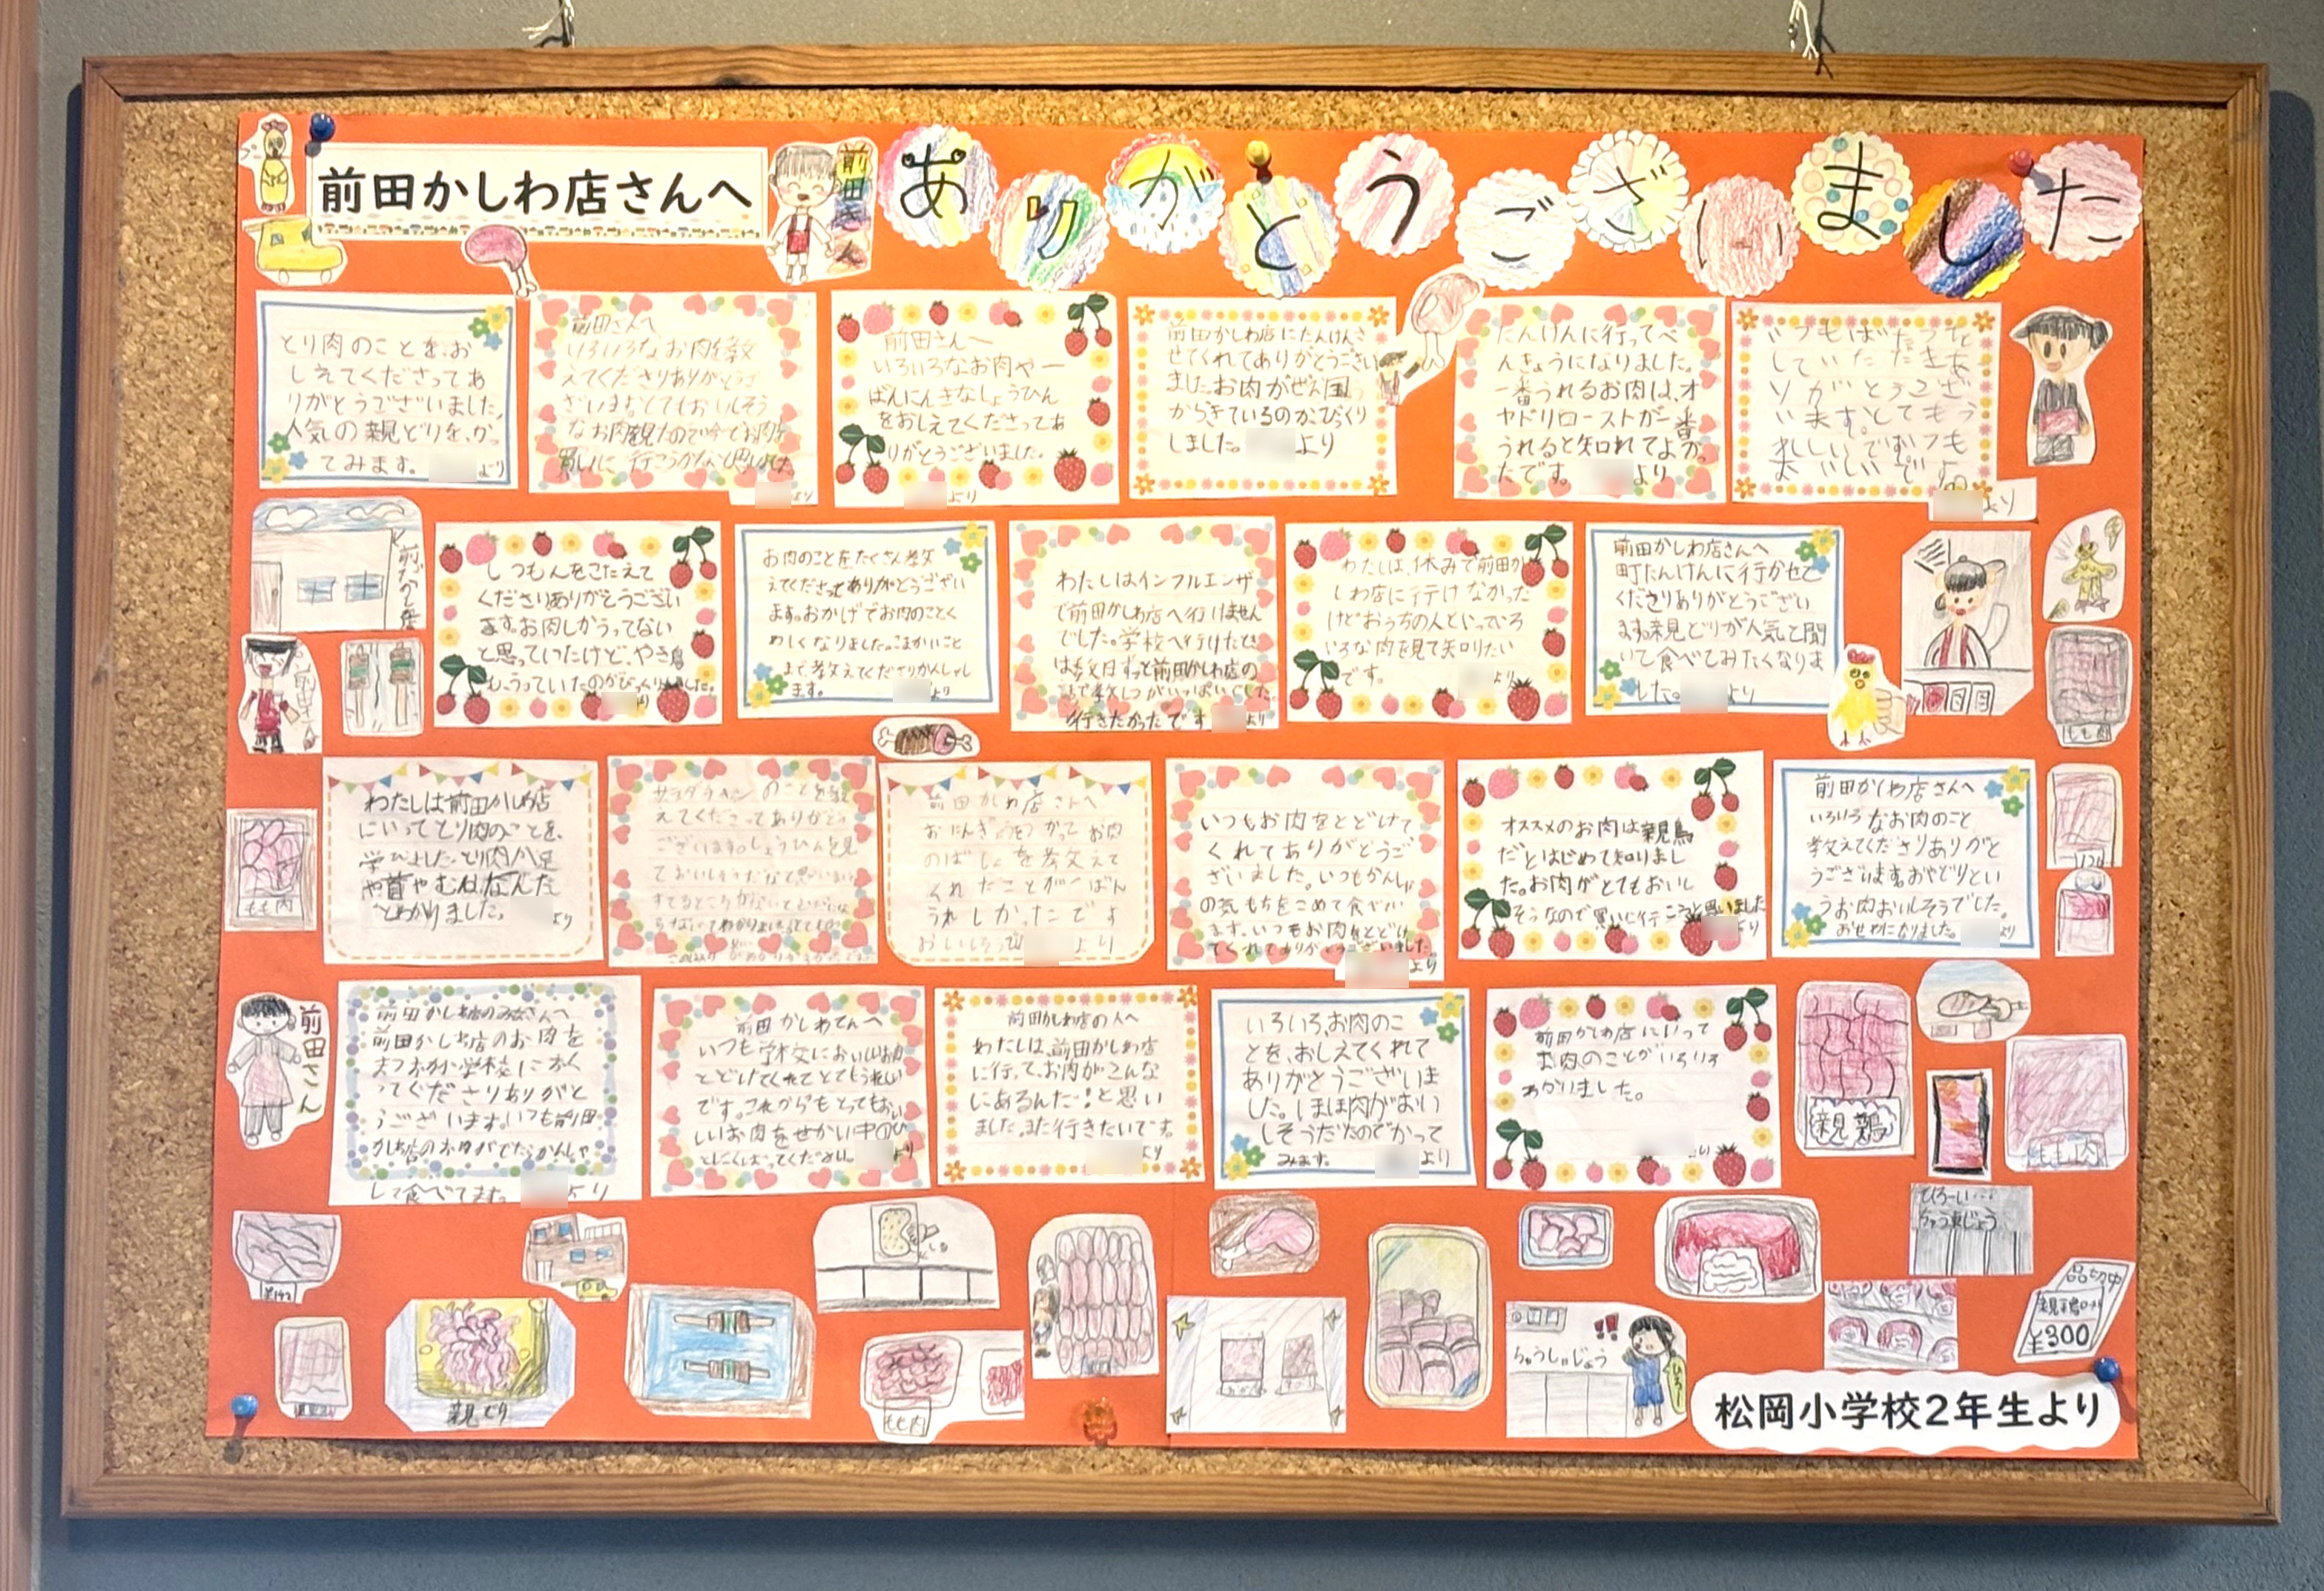 前田かしわ店さんへ
前田さん
ありがとうございました
とり肉のことを、お
しえてくださってあ
りがとうございました。
人気の親どりを、かっ
てみます。
より
前田さんへ
いろいろなお肉を教
えてくださりありがとうご
ざいます。とてもおいしそう
なお肉を見たので今でお肉を
買いに行こうかなと思いました
より
前田さんへ
いろいろなお肉や一
ばんにんきなしょうひん
をおしえてくださってあ
りがとうございました。
より
前田かしわ店にたんけんさ
せてくれてありがとうござい
ました。お肉がぜん国
からきているのが、びっくり
しました。
より
たんけんに行ってべ
んきょうになりました。
一番うれるお肉は、オ
ヤドリローストが一番
うれると知れてよかっ
たです。
より
していただきあ
りがとうござ
います。とてもう
れしいです。
より
しつもんをこたえて
くださりありがとうござい
ます。お肉しかうってない
と思っていたけど、やき鳥
もうっていたのがびっくりしました。
より
お肉のことをたくさん教
えてくださってありがとうござい
ます。おかげでお肉のことく
わしくなりました。こまかいこと
まで教えてくださりかんしゃし
ます。
より
わたしはインフルエンザ
で前田かしわ店へ行けません
でした。学校へ行けたとき
は
行きたかったです
より
わたしは、休みで前田か
しわ店に行けなかった
けどおうちの人といっていろ
いろな肉を見て知りたい
です。
より
前田かしわ店さんへ
町たんけんに行かせて
くださりありがとうござい
ます。親どりが人気と聞
いて食べてみたくなりま
した。
より
前田かしわ店
もも肉
わたしは前田かしわ店
にいってとり肉のことを、
学びました。とり肉が足
や首やむねなんだ
とわかりました。
より
サラダチキンのことを教
えてくださってありがとう
ございます。しょうひんを見
ておいしそうだなと思いました
前田かしわ店さんへ
おにんぎょうをつかってお肉
のばしょを教えて
くれたことが一ばん
うれしかったです
より
いつもお肉をとどけて
くれてありがとうご
ざいました。いつもかんしゃ
の気もちをこめて食べてい
ます。いつもお肉をとどけ
てくれてありがとうございました。
より
オススメのお肉は親鳥
だとはじめて知りまし
た。お肉がとてもおいし
そうなので買いに行こうと思いました
より
前田かしわ店さんへ
いろいろなお肉のこと
教えてくださりありがと
うございます。おやどりとい
うお肉おいしそうでした。
おせわになりました。
より
もも肉
前田さん
前田かしわ店のみなさんへ
前田かしわ店のお肉を
まつおか小学校におく
ってくださりありがと
うございます。いつも前田
かしわ店のお肉がでたらかんしゃ
して食べてます。
より
前田かしわてんへ
いつも学校においしいお肉
とどけてくれてとてもうれしい
です。これからもとってもおい
しいお肉をせかい中のひ
とにくばってください。
より
前田かしわ店の人へ
わたしは、前田かしわ店
に行って、お肉がこんな
にあるんだ!と思い
ました。また行きたいです。
より
いろいろ、お肉のこ
とを、おしえてくれて
ありがとうございま
した。ほほ肉がおい
しそうだったのでかって
みます。
より
前田かしわ店にいって
お肉のことがいろいろ
わかりました。
より
親鶏
もも肉
ひろーい…
ちゅう車じょう
親どり
もも肉
ちゅうしゃじょう
品切中
¥300
松岡小学校2年生より